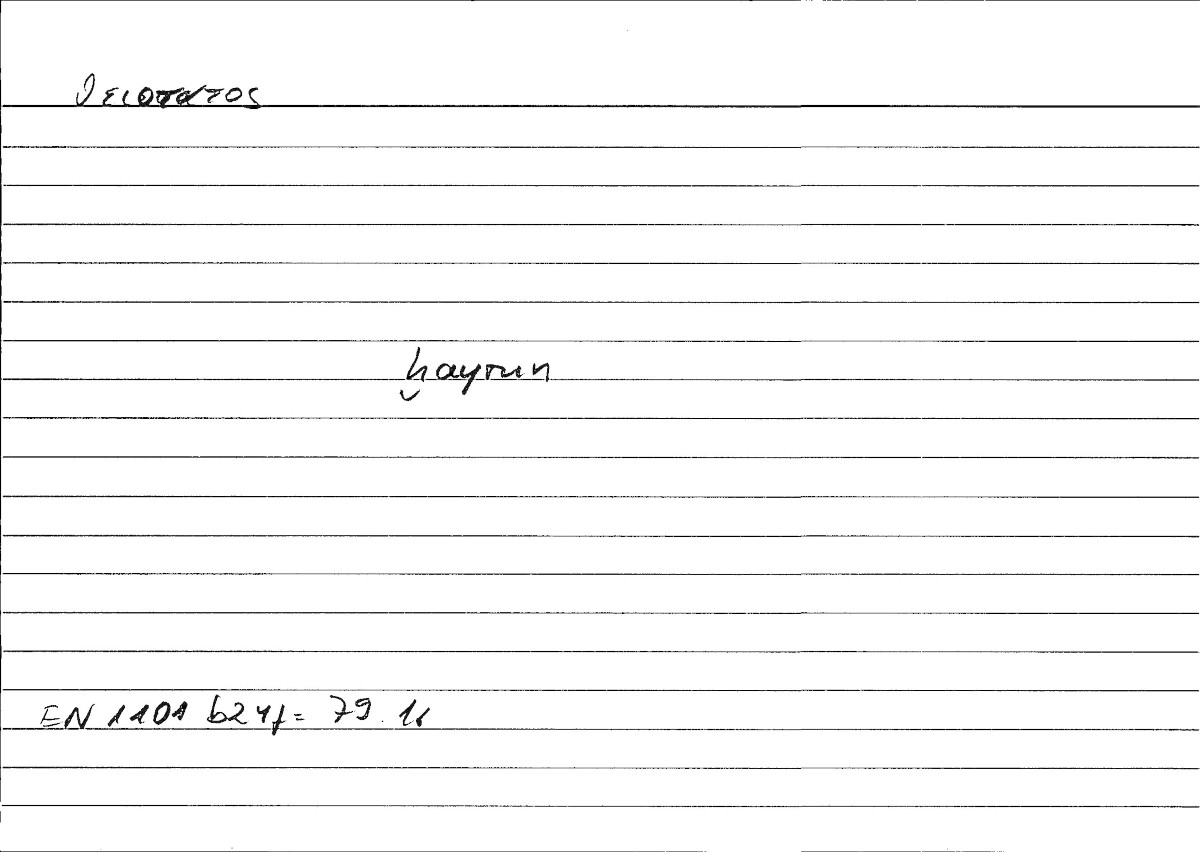 θειοτατος
ḫayrun
EN 1101 b24f= 79.16